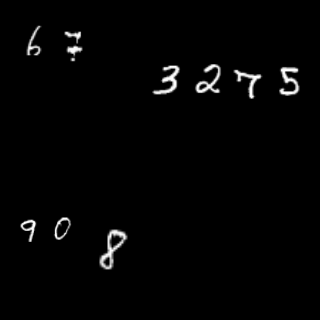 6 7
3 2 7 5
9 0
8